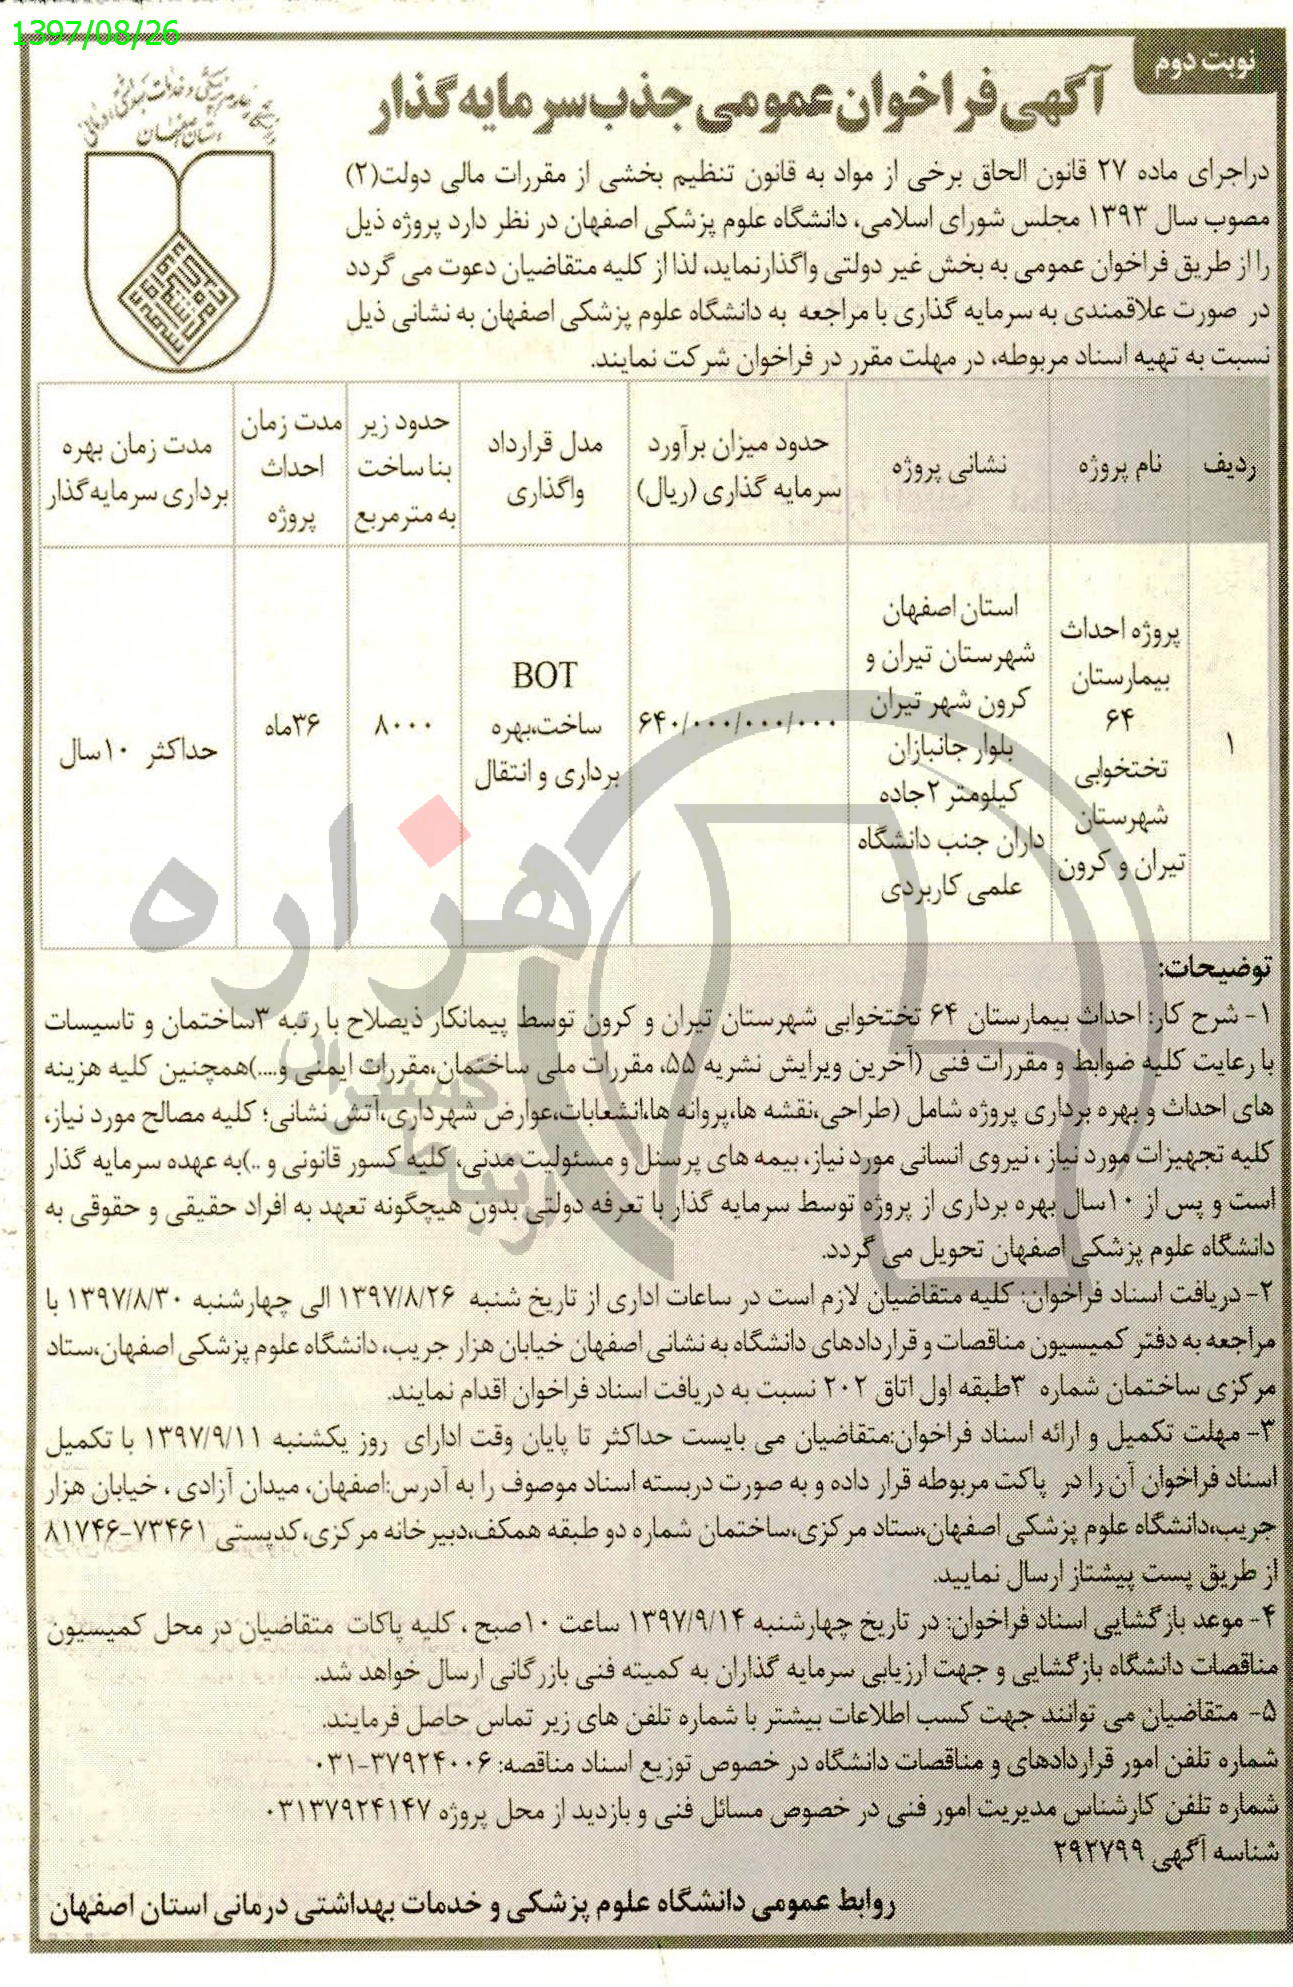 1397/08/26
نوبت دوم
آگهی فراخوان عمومی جذب سرمایه گذار
دراجرای ماده ۲۷ قانون الحاق برخی از مواد به قانون تنظیم بخشی از مقررات مالی دولت(۲)
مصوب سال ۱۳۹۳ مجلس شورای اسلامی، دانشگاه علوم پزشکی اصفهان در نظر دارد پروژه ذیل
را از طریق فراخوان عمومی به بخش غیر دولتی واگذارنماید، لذا از کلیه متقاضیان دعوت می گردد
در صورت علاقمندی به سرمایه گذاری با مراجعه به دانشگاه علوم پزشکی اصفهان به نشانی ذیل
نسبت به تهیه اسناد مربوطه، در مهلت مقرر در فراخوان شرکت نمایند.
ردیف
نام پروژه
نشانی پروژه
حدود میزان برآورد
سرمایه گذاری (ریال)
مدل قرارداد
واگذاری
حدود زیر
بنا ساخت
به مترمربع
مدت زمان
احداث
پروژه
مدت زمان بهره
برداری سرمایه گذار
۱
پروژه احداث
بیمارستان
۶۴
تختخوابی
شهرستان
تیران و کرون
استان اصفهان
شهرستان تیران و
کرون شهر تیران
بلوار جانبازان
کیلومتر ۲جاده
داران جنب دانشگاه
علمی کاربردی
۶۴۰/۰۰۰/۰۰۰/۰۰۰
BOT
ساخت،بهره
برداری و انتقال
۸۰۰۰
۳۶ماه
حداکثر ۱۰سال
هزاره
توضیحات:
۱- شرح کار: احداث بیمارستان ۶۴ تختخوابی شهرستان تیران و کرون توسط پیمانکار ذیصلاح با رتبه ۳ساختمان و تاسیسات
با رعایت کلیه ضوابط و مقررات فنی (آخرین ویرایش نشریه ۵۵، مقررات ملی ساختمان،مقررات ایمنی و....)همچنین کلیه هزینه
های احداث و بهره برداری پروژه شامل (طراحی،نقشه ها،پروانه ها،انشعابات،عوارض شهرداری،آتش نشانی؛ کلیه مصالح مورد نیاز،
کلیه تجهیزات مورد نیاز ، نیروی انسانی مورد نیاز، بیمه های پرسنل و مسئولیت مدنی، کلیه کسور قانونی و ..)به عهده سرمایه گذار
است و پس از ۱۰سال بهره برداری از پروژه توسط سرمایه گذار با تعرفه دولتی بدون هیچگونه تعهد به افراد حقیقی و حقوقی به
دانشگاه علوم پزشکی اصفهان تحویل می گردد.
۲- دریافت اسناد فراخوان: کلیه متقاضیان لازم است در ساعات اداری از تاریخ شنبه ۱۳۹۷/۸/۲۶ الی چهارشنبه ۱۳۹۷/۸/۳۰ با
مراجعه به دفتر کمیسیون مناقصات و قراردادهای دانشگاه به نشانی اصفهان خیابان هزار جریب، دانشگاه علوم پزشکی اصفهان،ستاد
مرکزی ساختمان شماره ۳طبقه اول اتاق ۲۰۲ نسبت به دریافت اسناد فراخوان اقدام نمایند.
۳- مهلت تکمیل و ارائه اسناد فراخوان:متقاضیان می بایست حداکثر تا پایان وقت ادارای روز یکشنبه ۱۳۹۷/۹/۱۱ با تکمیل
اسناد فراخوان آن را در پاکت مربوطه قرار داده و به صورت دربسته اسناد موصوف را به آدرس:اصفهان، میدان آزادی ، خیابان هزار
جریب،دانشگاه علوم پزشکی اصفهان،ستاد مرکزی،ساختمان شماره دو طبقه همکف،دبیرخانه مرکزی،کدپستی ۷۳۴۶۱-۸۱۷۴۶
از طریق پست پیشتاز ارسال نمایید.
۴- موعد بازگشایی اسناد فراخوان: در تاریخ چهارشنبه ۱۳۹۷/۹/۱۴ ساعت ۱۰صبح ، کلیه پاکات متقاضیان در محل کمیسیون
مناقصات دانشگاه بازگشایی و جهت ارزیابی سرمایه گذاران به کمیته فنی بازرگانی ارسال خواهد شد.
۵- متقاضیان می توانند جهت کسب اطلاعات بیشتر با شماره تلفن های زیر تماس حاصل فرمایند.
شماره تلفن امور قراردادهای و مناقصات دانشگاه در خصوص توزیع اسناد مناقصه: ۳۷۹۲۴۰۰۶-۰۳۱
شماره تلفن کارشناس مدیریت امور فنی در خصوص مسائل فنی و بازدید از محل پروژه ۰۳۱۳۷۹۲۴۱۴۷
شناسه آگهی ۲۹۲۷۹۹
روابط عمومی دانشگاه علوم پزشکی و خدمات بهداشتی درمانی استان اصفهان